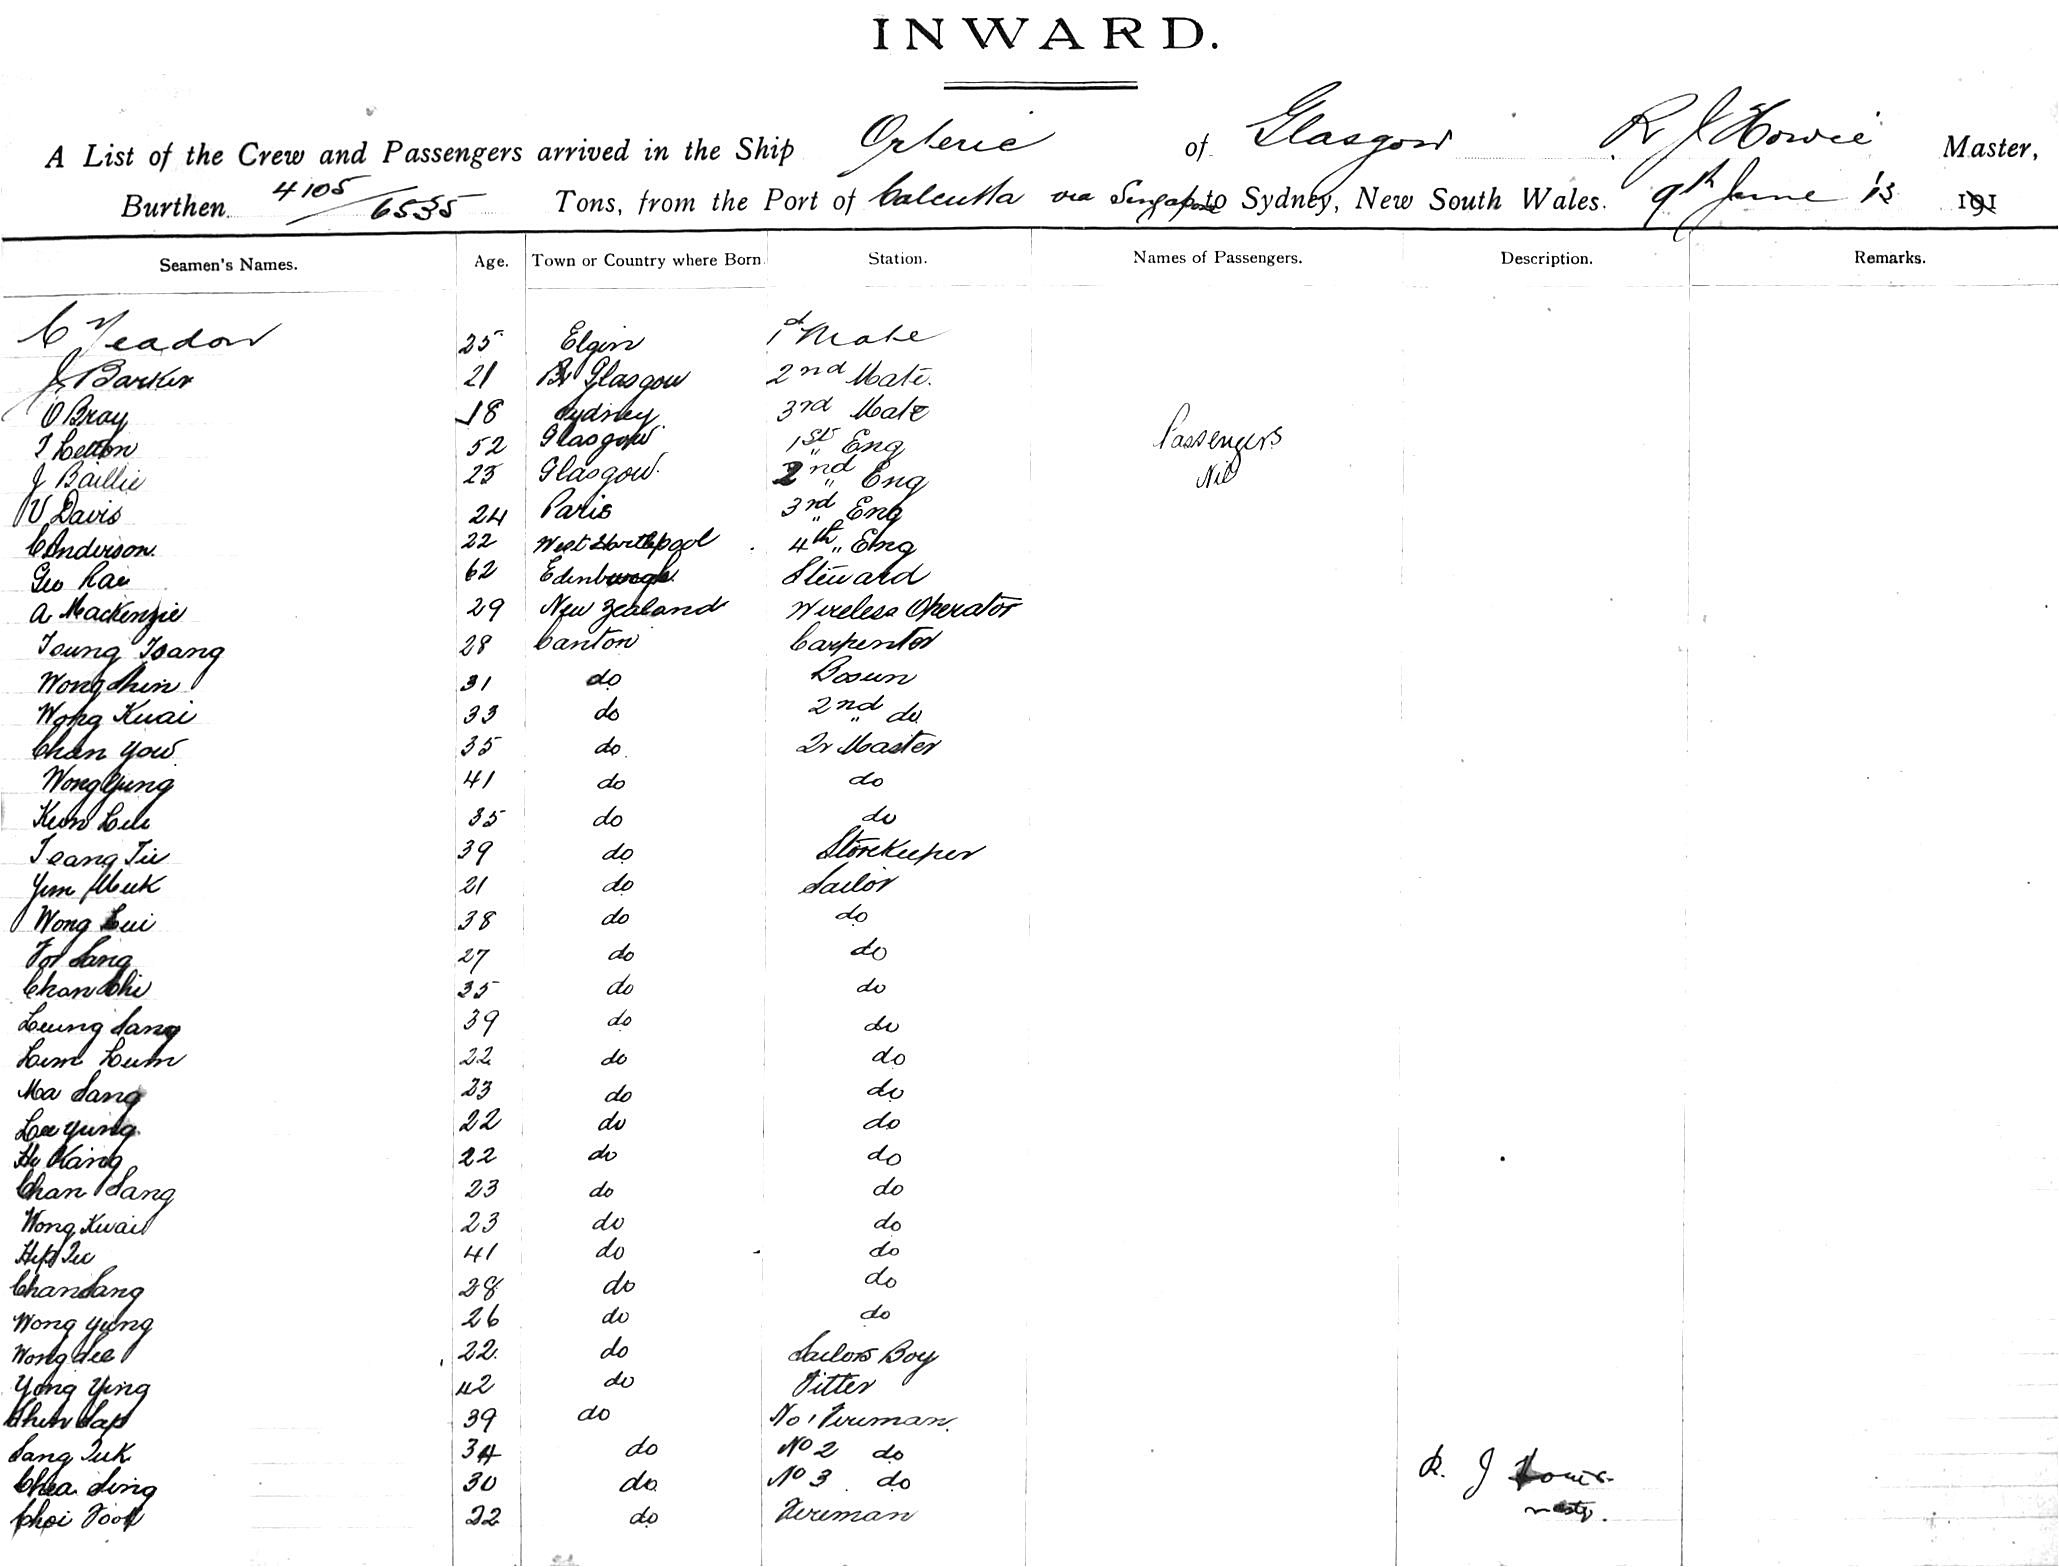 INWARD.
A List of the Crew and Passengers arrived in the Ship Orteric of Glasgow R J Howie Master,
Burthen 4105/6535 Tons, from the Port of Calcutta via Singapore to Sydney, New South Wales. 9th June 13 191
Seamen's Names. Age. Town or Country where Born. Station. Names of Passengers. Description. Remarks.
C Yeadon 25 Elgin 1st Mate
J Barker 21 Glasgow 2nd Mate.
O Bray 18 Sydney 3rd Mate
52 Glasgow 1st Eng Passengers
J Baillie 25 Glasgow 2nd Eng Nil
V Davis 24 Paris 3rd Eng
C Anderson 22 West Hartlepool 4th Eng
Geo Rae 62 Edinburgh Steward
A MacKenzie 29 New Zealand Wireless Operator
Tsang 28 Canton Carpenter
Wong Shin 31 do Bosun
Wong Kwai 33 do 2nd do
Chan Yow 35 do Qr Master
Wong Yung 41 do do
35 do do
Tsang 39 do Storekeeper
21 do Sailor
Wong Lui 38 do do
Sang 27 do do
Chan Chi 35 do do
Leung Sang 39 do do
22 do do
Ma Sang 23 do do
Lee Yung 22 do do
22 do do
Chan Sang 23 do do
Wong Kwai 23 do do
41 do do
Chan Sang 28 do do
Wong Yung 26 do do
Wong See 22 do Sailors Boy
Yong Ying 42 do Fitter
39 do No 1 Fireman
Sang 34 do No 2 do
30 do No 3 do R. J Howie
22 do Fireman master.